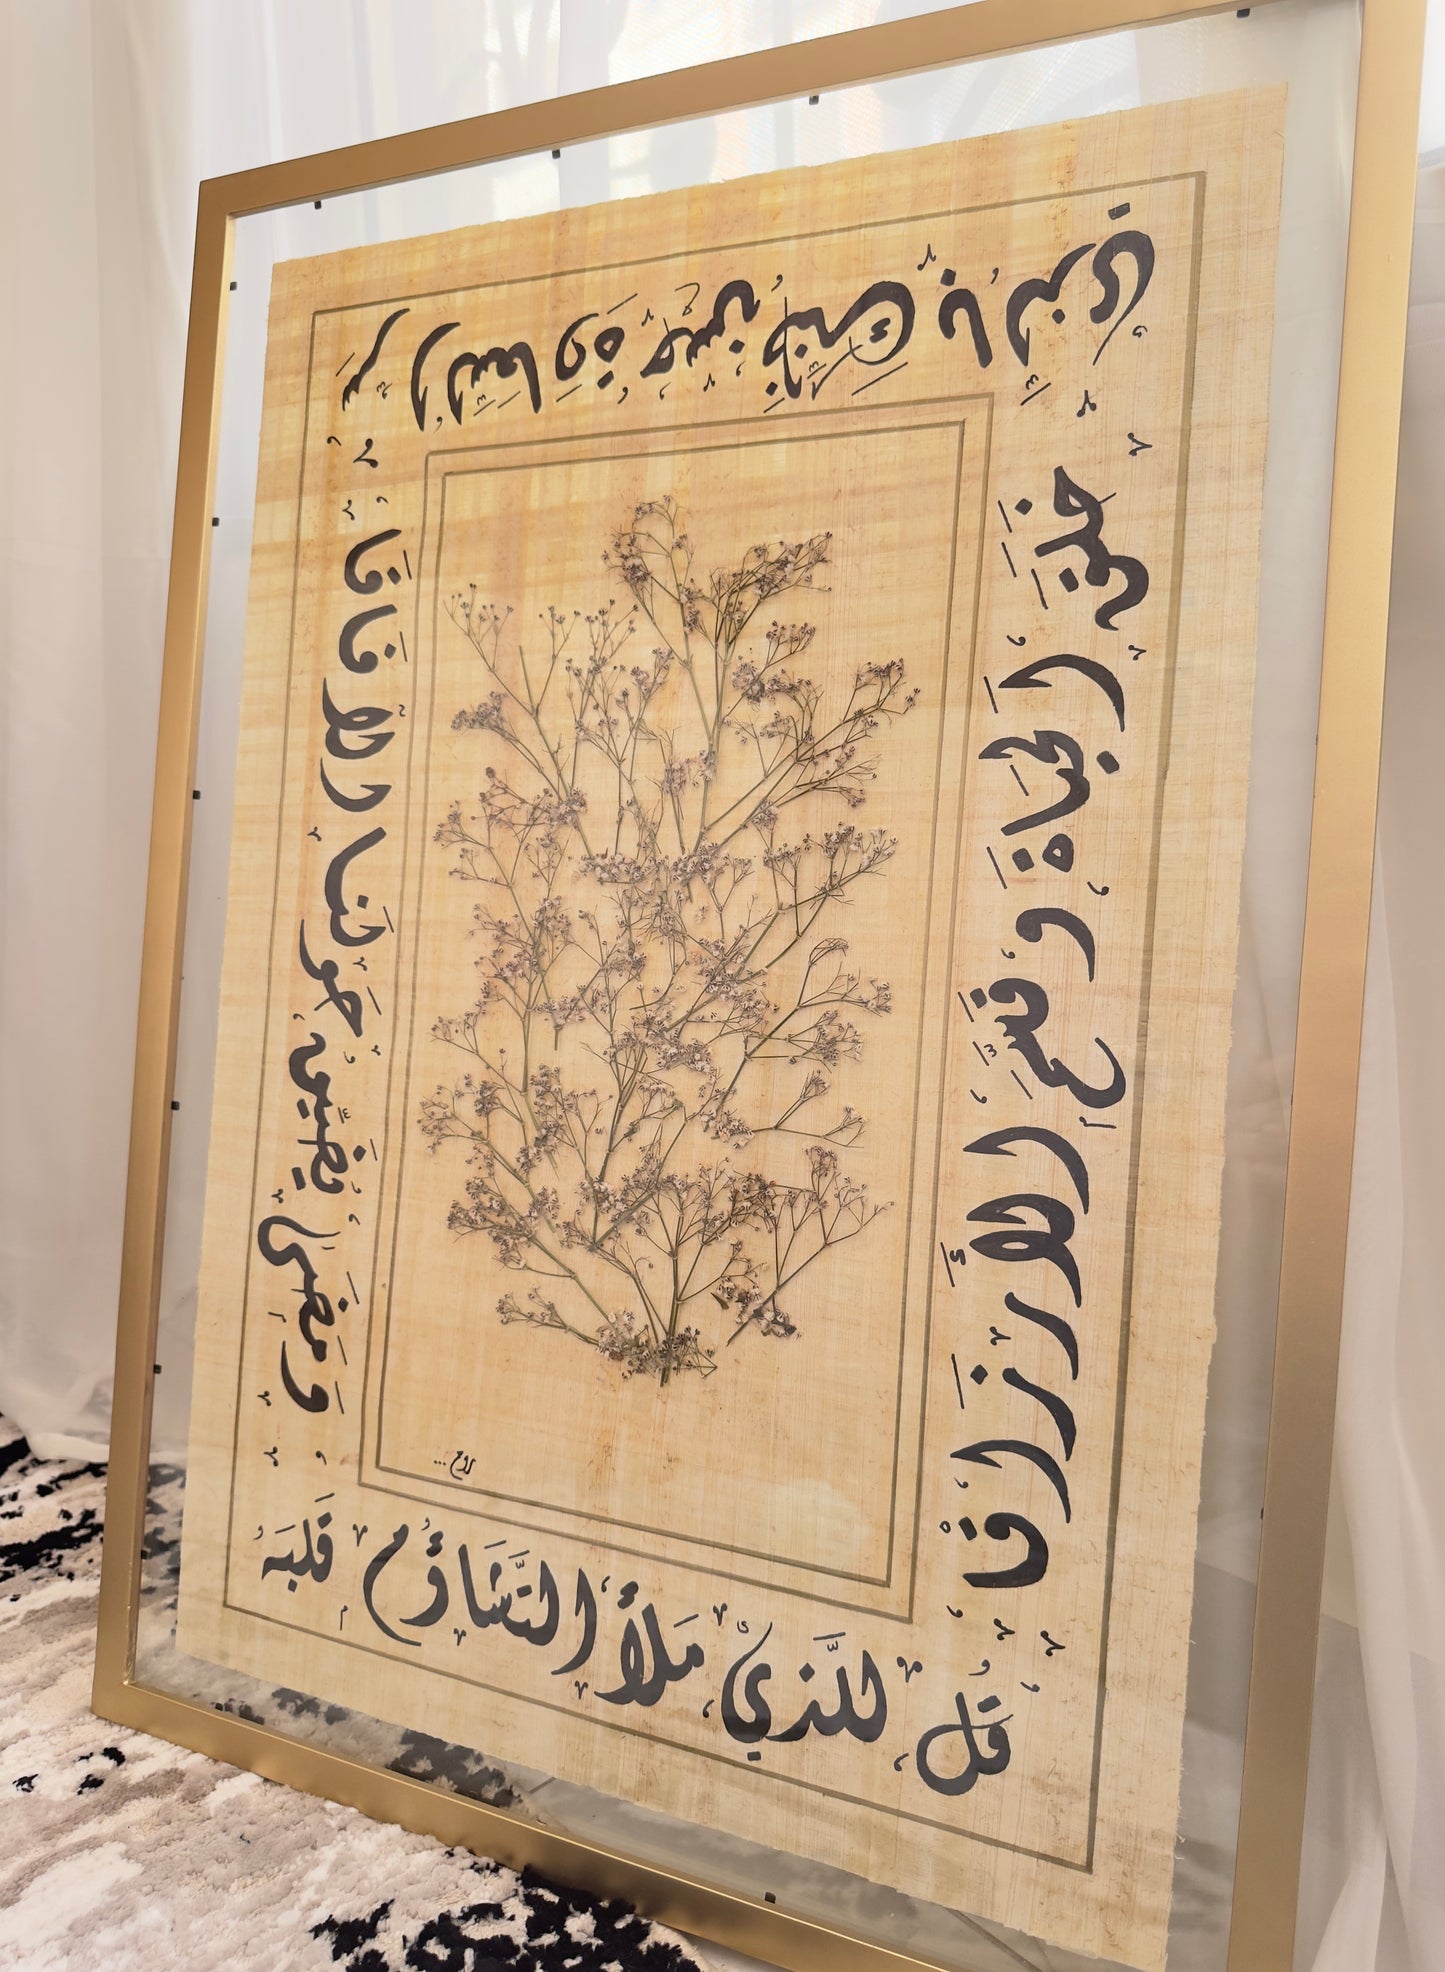 قُل لِلَّذِي مَلَأَ التَّشَاؤُمُ قَلبَهُ
وَمَضَى يُضَيِّقُ حَولَنَا الآفَاقَا
سِرُّ السَّعَادَةِ حُسنُ ظَنِّكَ بِالَّذِي
خَلَقَ الحَيَاةَ وَقَسَّمَ الأَرزَاقَا
روح...